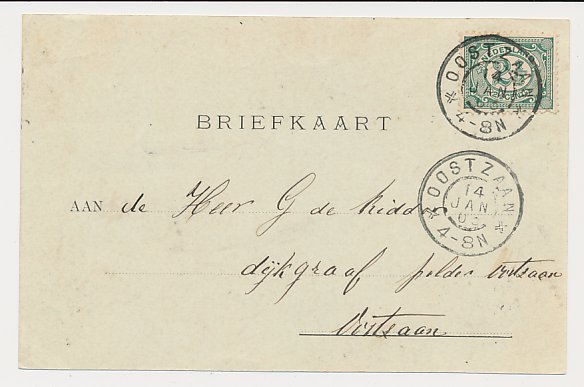 OOSTZAAN
14
JAN
4-8N
NEDERLAND
2½
BRIEFKAART
AAN de Heer G de Ridder
OOSTZAAN
14
JAN
03
4-8N
dijkgraaf polder Oostzaan
Oostzaan